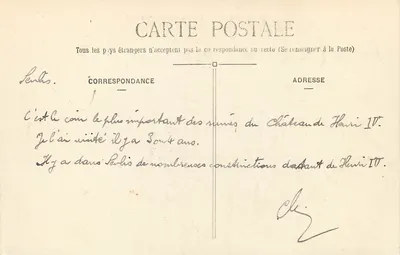 CARTE POSTALE
Tous les pays étrangers n'acceptent pas la correspondance au recto (Se renseigner à la Poste)
Senlis.
CORRESPONDANCE
ADRESSE
C'est le coin le plus important des ruines du Château de Henri IV.
Je l'ai visité il y a 3 ou 4 ans.
Il y a dans Senlis de nombreuses constructions datant de Henri IV.